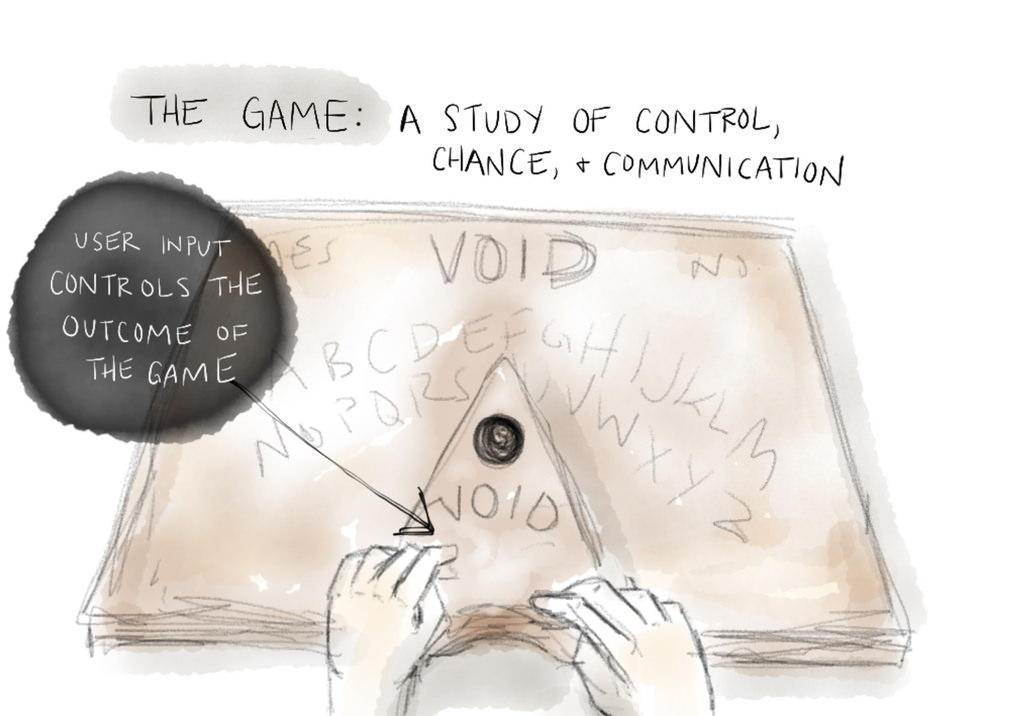 THE GAME: A STUDY OF CONTROL,
CHANCE, + COMMUNICATION
USER INPUT
CONTROLS THE
OUTCOME OF
THE GAME
YES VOID NO
A B C D E F G H I J K L M
N O P Q R S V W X Y Z
VOID